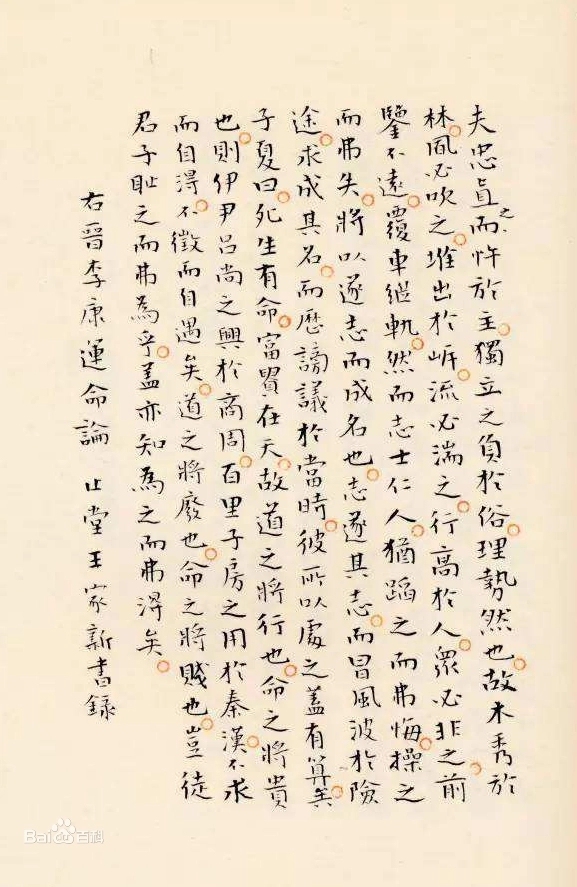 夫忠直而之忤於主獨立之負於俗理勢然也故木秀於
林風必吹之堆出於岸流必湍之行高於人眾必非之前
鑒不遠覆車繼軌然而志士仁人猶蹈之而弗悔操之
而弗失將以遂志而成名也志遂其志而冒風波於險
途求成其名而歷謗議於當時彼所以處之蓋有算矣
子夏曰死生有命富貴在天故道之將行也命之將貴
也則伊尹呂尚之興於商周百里子房之用於秦漢不求
而自得不徵而自遇矣道之將廢也命之將賤也豈徒
君子恥之而弗為乎蓋亦知為之而弗得矣
右晉李康運命論 止堂王家新書錄
Bai百科